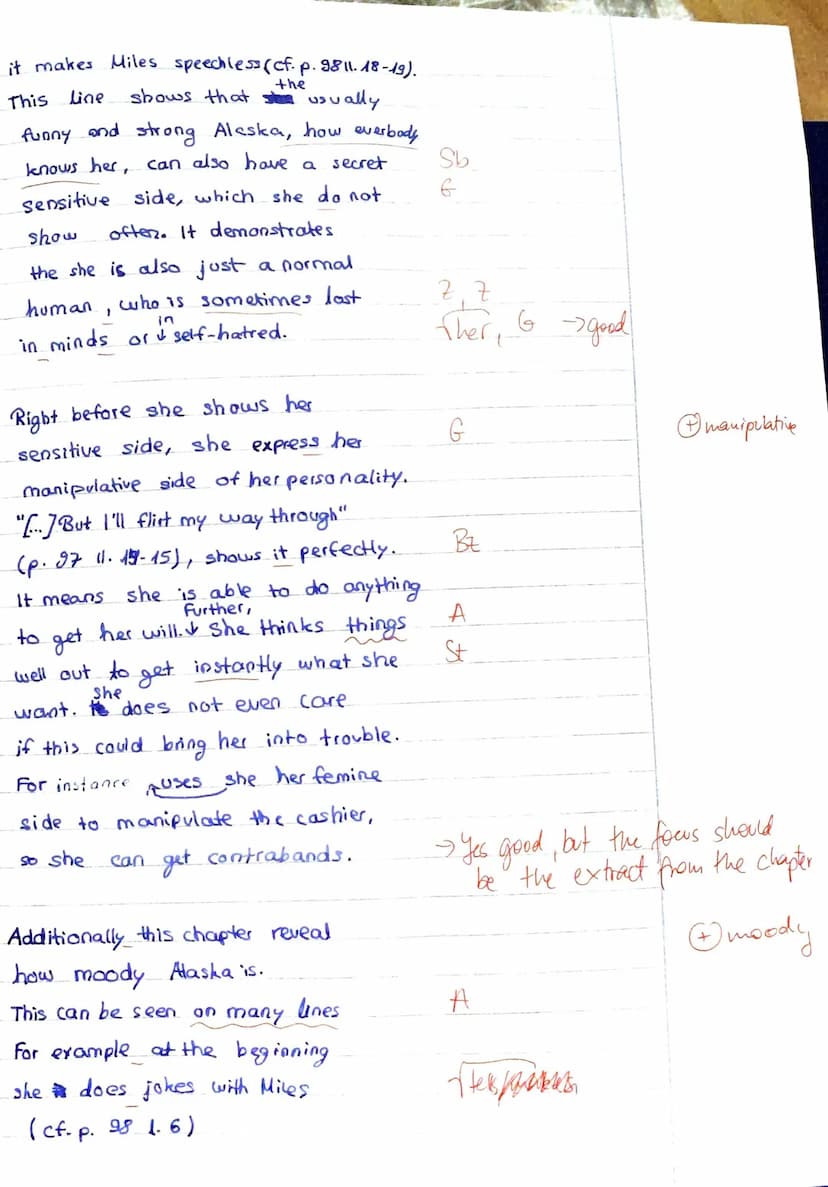 it makes Miles speechless (cf. p. 98 ll. 18-19).
This line shows that the usually
funny and strong Alaska, how everbody
knows her, can also have a secret Sb
sensitive side, which she do not G
show often. It demonstrates
the she is also just a normal
human, who is sometimes lost Z, Z
in minds or in self-hatred. √her, G → good
Right before she shows her
sensitive side, she express her G + manipulative
manipulative side of her personality.
"[...] But I'll flirt my way through"
(p. 97 ll. 15), shows it perfectly. Bz
It means she is able to do anything
to get her will. Further, She thinks things A
well out to get instantly what she St
want. She does not even care
if this could bring her into trouble.
For instance uses she her femine
side to manipulate the cashier,
so she can get contrabands. → Yes good, but the focus should
be the extract from the chapter
Additionally this chapter reveal + moody
how moody Alaska is.
This can be seen on many lines A
For example at the beginning
she does jokes with Miles
(cf. p. 98 l. 6)